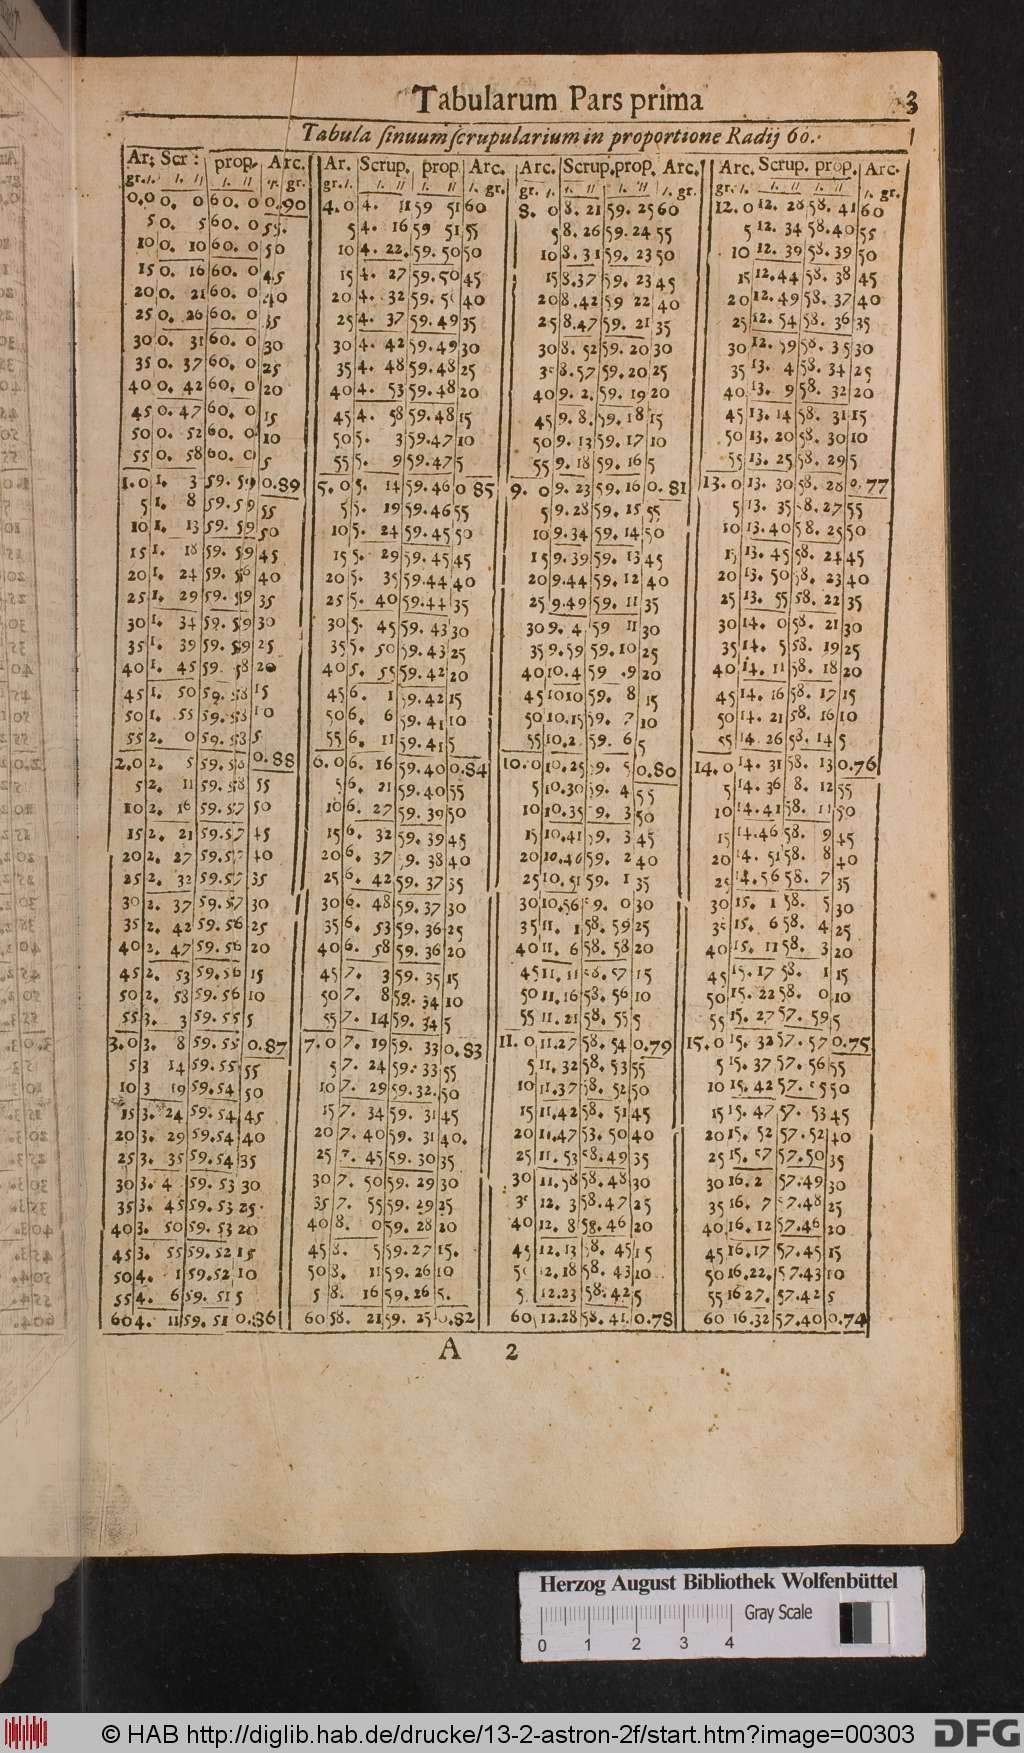 Tabularum Pars prima 3
Tabula sinuum scrupularium in proportione Radij 60.
Ar: Scr: prop. Arc. Ar. Scrup. prop Arc. Arc. Scrup. prop. Arc. Arc. Scrup. prop. Arc.
0,0 0. 0 60. 0 0.90 4. 0 4. 11 59 51 60 8. 0 8. 21 59. 25 60 12. 0 12. 28 58. 41 60
5 0. 5 60. 0 55. 5 4. 16 59 51 55 5 8. 26 59. 24 55 5 12. 34 58. 40 55
10 0. 10 60. 0 50 10 4. 22. 59. 50 50 10 8. 31 59. 23 50 10 12. 39 58. 39 50
15 0. 16 60. 0 45 15 4. 27 59. 50 45 15 8.37 59. 23 45 15 12.44 58. 38 45
20 0. 21 60. 0 40 20 4. 32 59. 40 20 8.42 59 22 40 20 12.49 58. 37 40
25 0. 26 60. 0 35 25 4. 37 59.49 35 25 8.47 59. 21 35 25 12. 54 58. 36 35
30 0. 31 60. 0 30 30 4. 42 59.49 30 30 8. 52 59. 20 30 30 12. 59 58. 35 30
35 0. 37 60. 0 25 35 4. 48 59.48 25 8.57 59. 20 25 35 13. 4 58. 34 25
40 0. 42 60. 0 20 40 4. 53 59.48 20 40 9. 2. 59. 19 20 40 13. 9 58. 32 20
45 0. 47 60. 0 15 45 4. 58 59.48 15 45 9. 8. 59. 18 15 45 13. 14 58. 31 15
50 0. 52 60. 0 10 50 5. 3 59.47 10 50 9. 13 59. 17 10 50 13. 20 58. 30 10
55 0. 58 60. 0 5 55 5. 9 59.47 5 55 9. 18 59. 16 5 55 13. 25 58. 29 5
1.0 1. 3 59. 59 0.89 5. 0 5. 14 59.46 0 85 9. 0 9. 23 59. 16 0. 81 13. 0 13. 30 58. 28 0.77
5 1. 8 59. 59 55 5 5. 19 59.46 55 5 9.28 59. 15 55 5 13. 35 58.27 55
10 1. 13 59. 59 50 10 5. 24 59.45 50 10 9.34 59. 14 50 10 13.40 58. 25 50
15 1. 18 59. 59 45 15 5. 29 59.45 45 15 9.39 59. 13 45 15 13. 45 58. 24 45
20 1. 24 59. 40 20 5. 35 59.44 40 20 9.44 59. 12 40 20 13. 50 58. 23 40
25 1. 29 59. 59 35 25 5. 40 59.44 35 25 9.49 59. 11 35 25 13. 55 58. 22 35
30 1. 34 59. 59 30 30 5. 45 59. 43 30 30 9. 4 59 11 30 30 14. 0 58. 21 30
35 1. 39 59. 59 25 35 5. 50 59. 43 25 35 9.59 59. 10 25 35 14. 5 58. 19 25
40 1. 45 59. 58 20 40 5. 55 59. 42 20 40 10.4 59 .9 20 40 14. 11 58. 18 20
45 1. 50 59. 58 15 45 6. 1 59.42 15 45 10 10 59. 8 15 45 14. 16 58. 17 15
50 1. 55 59. 58 10 50 6. 6 59. 41 10 50 10.15 59. 7 10 50 14. 21 58. 16 10
55 2. 0 59. 58 5 55 6. 11 59. 41 5 55 10.2 59. 6 5 55 14. 26 58. 14 5
2.0 2. 5 59. 58 0.88 6. 0 6. 16 59.40 0.84 10. 0 10.25 59. 5 0.80 14. 0 14. 31 58. 13 0.76
5 2. 11 59. 58 55 5 6. 21 59.40 55 5 10.30 59. 4 55 5 14. 36 8. 12 55
10 2. 16 59. 57 50 10 6. 27 59. 39 50 10 10.35 59. 3 50 10 14. 41 58. 11 50
15 2. 21 59.57 45 15 6. 32 59. 39 45 15 10.41 59. 3 45 15 14.46 58. 9 45
20 2. 27 59.57 40 20 6. 37 9. 38 40 20 10.46 59. 2 40 20 14. 51 58. 8 40
25 2. 32 59.57 35 25 6. 42 59. 37 35 25 10. 51 59. 1 35 25 14.56 58. 7 35
30 2. 37 59.57 30 30 6. 48 59. 37 30 30 10.56 59. 0 30 30 15. 1 58. 5 30
35 2. 42 59. 56 25 35 6. 53 59. 36 25 35 11. 1 58. 59 25 35 15. 6 58. 4 25
40 2. 47 59. 56 20 40 6. 58 59. 36 20 40 11. 6 58. 58 20 40 15. 11 58. 3 20
45 2. 53 59.56 15 45 7. 3 59. 35 15 45 11. 11 58. 57 15 45 15. 17 58. 1 15
50 2. 58 59. 56 10 50 7. 8 59. 34 10 50 11. 16 58. 56 10 50 15. 22 58. 0 10
55 3. 3 59. 55 5 55 7. 14 59. 34 5 55 11. 21 58. 55 5 55 15. 27 57. 59 5
3.0 3. 8 59. 55 0.87 7. 0 7. 19 59. 33 0.83 11. 0 11.27 58. 54 0.79 15. 0 15. 32 57. 57 0.75
5 3 14 59. 55 55 5 7. 24 59. 33 55 5 11. 32 58. 53 55 5 15. 37 57. 56 55
10 3 19 59.54 50 10 7. 29 59.32. 50 10 11.37 58. 52 50 10 15. 42 57. 55 50
15 3. 24 59. 54 45 15 7. 34 59. 31 45 15 11.42 58. 51 45 15 15. 47 57. 53 45
20 3. 29 59.54 40 20 7. 40 59. 31 40. 20 11.47 53. 50 40 20 15. 52 57.52 40
25 3. 35 59. 54 35 25 7. 45 59. 30 35 25 11. 53 58.49 35 25 15. 57 57.50 35
30 3. 4 59. 53 30 30 7. 50 59. 29 30 30 11. 58 58. 48 30 30 16. 2 57.49 30
35 3. 45 59. 53 25 35 7. 55 59. 29 25 12. 3 58.47 25 35 16. 7 57.48 25
40 3. 50 59. 53 20 40 8. 0 59. 28 20 40 12. 8 58. 46 20 40 16. 12 57.46 20
45 3. 55 59. 52 15 45 8. 5 59. 27 15. 45 12. 13 58. 45 15 45 16.17 57.45 15
50 4. 1 59.52 10 50 8. 11 59. 26 10 12.18 58. 43 10 50 16.22. 57.43 10
55 4. 6 59. 51 5 5 8. 16 59. 26 5. 5 12.23 58. 42 5 55 16 27. 57.42 5
60 4. 11 59. 51 0.86 60 58. 21 59. 25 0.82 60 12.28 58. 41. 0.78 60 16.32 57.40 0.74
A 2
Herzog August Bibliothek Wolfenbüttel
Gray Scale
0 1 2 3 4
© HAB http://diglib.hab.de/drucke/13-2-astron-2f/start.htm?image=00303 DFG